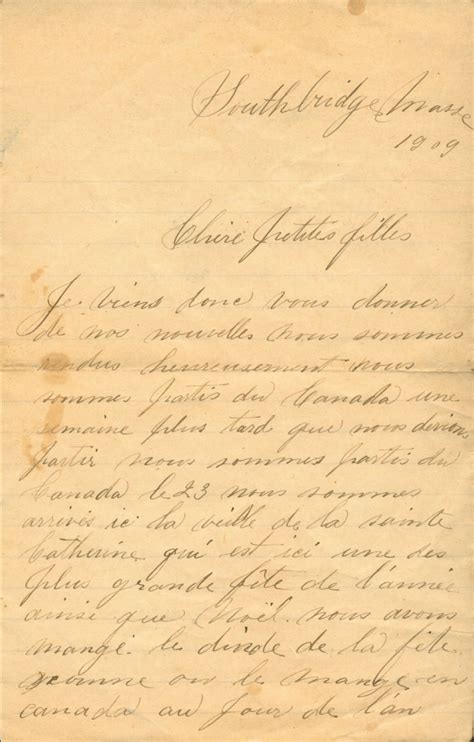 Southbridge, Masse
1909
Chère petites filles
Je viens donc vous donner
de nos nouvelles nous sommes
rendus heureusement nous
sommes partis du Canada une
semaine plus tard que nous devions
partir nous sommes partis du
Canada le 23 nous sommes
arrivés ici la veille de la sainte
Catherine qui est ici une des
plus grande fête de l'année
ainsi que Noël. nous avons
mangé le dinde de la fête
comme on le mange en
canada au jour de l'an